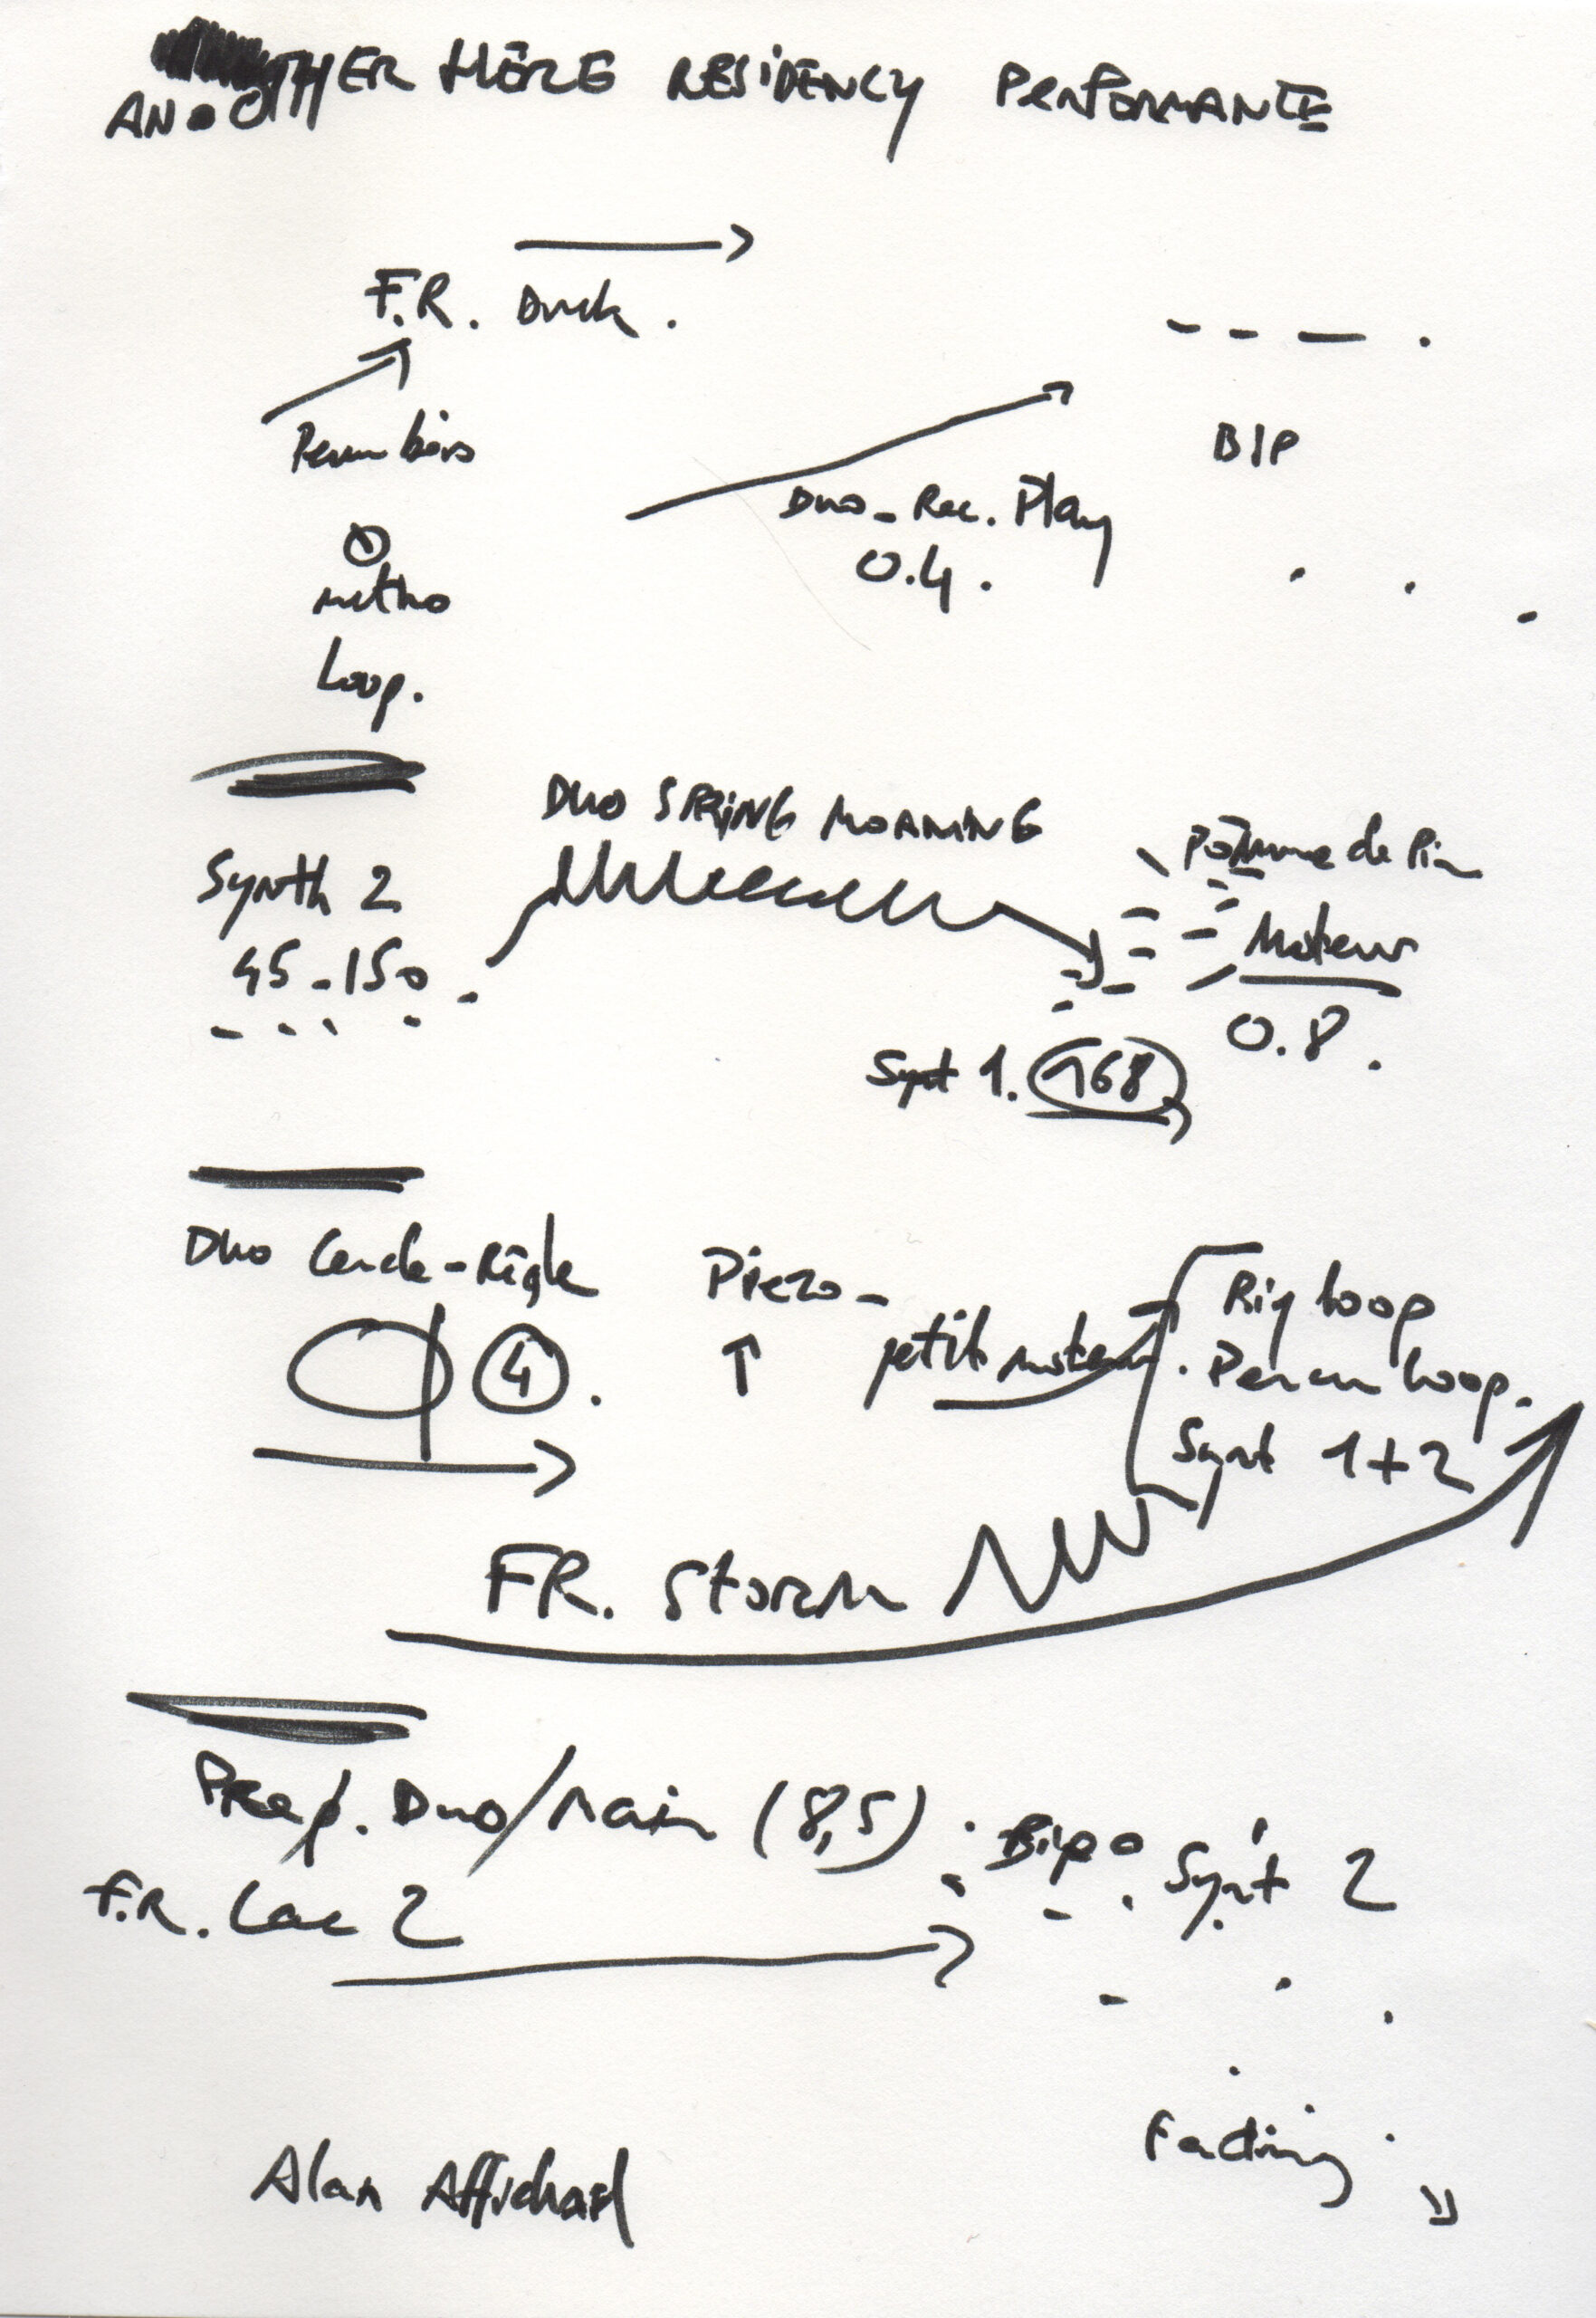 ANOTHER HÖRG RESIDENCY PERFORMANCE
F.R. Duck.
BIP
Duo - Rec. Play
0.4.
Loop.
DUO SPRING MOANING
Synth 2
45-150
Pomme de Pin
Moteur
0.8.
Synt 1. 168
Duo Cercle-Règle
4.
Piezo -
petit moteur
Rig loop
Synt 1+2
FR. Storm
Prep. Duo/main (8,5)
Bip
Synt 2
F.R. Lac 2
Fading
Alan Affichard